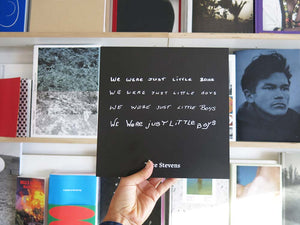 WE WERE JUST LITTLE BOYS
WE WERE JUST LITTLE BOYS
WE WERE JUST LITTLE BOYS
WE WERE JUST LITTLE BOYS
Stevens